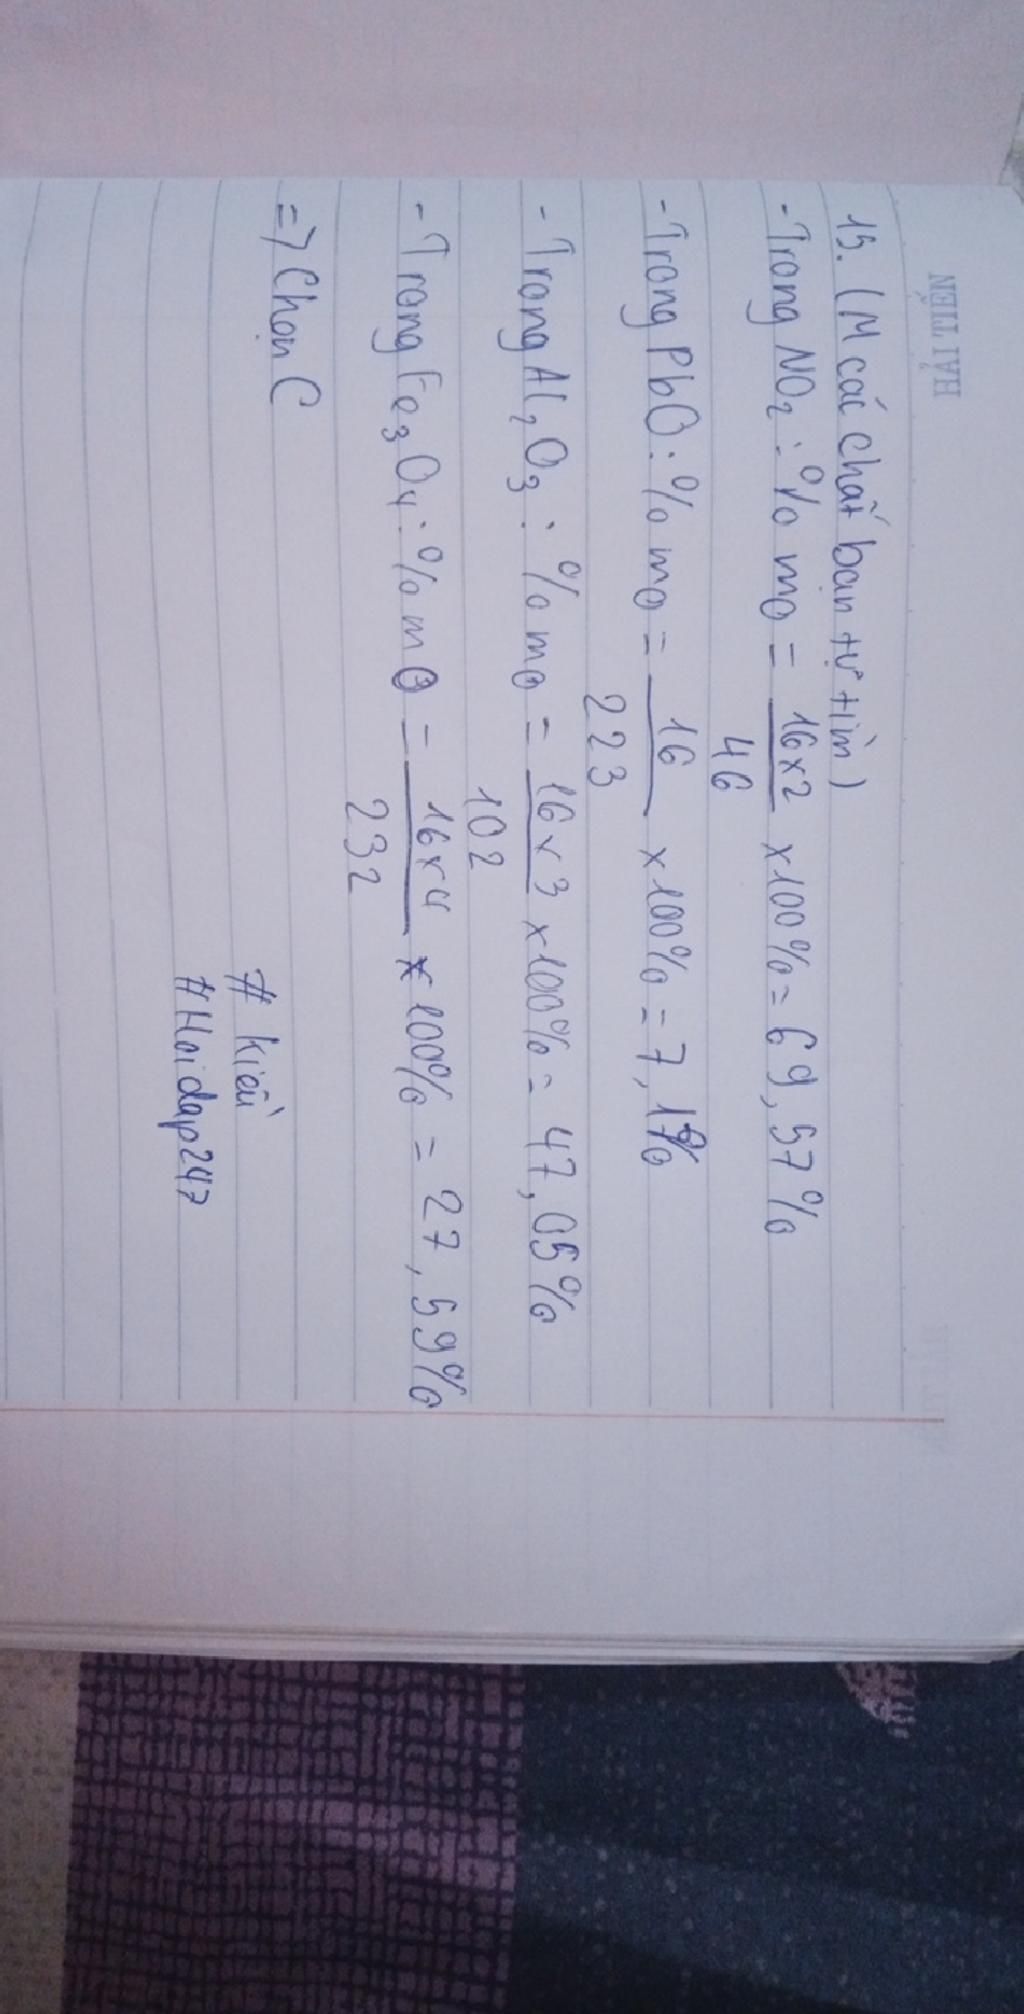 HẢI TIẾN
15. (M các chất bạn tự tìm)
- Trong NO2 : % mO = 16x2 / 46 x100% = 69,57%
- Trong PbO : % mO = 16 / 223 x100% = 7,1%
- Trong Al2O3 : % mO = 16x3 / 102 x100% = 47,05%
- Trong Fe3O4 : % mO = 16x4 / 232 x100% = 27,59%
=> Chọn C
# kiều
#Hoidap247